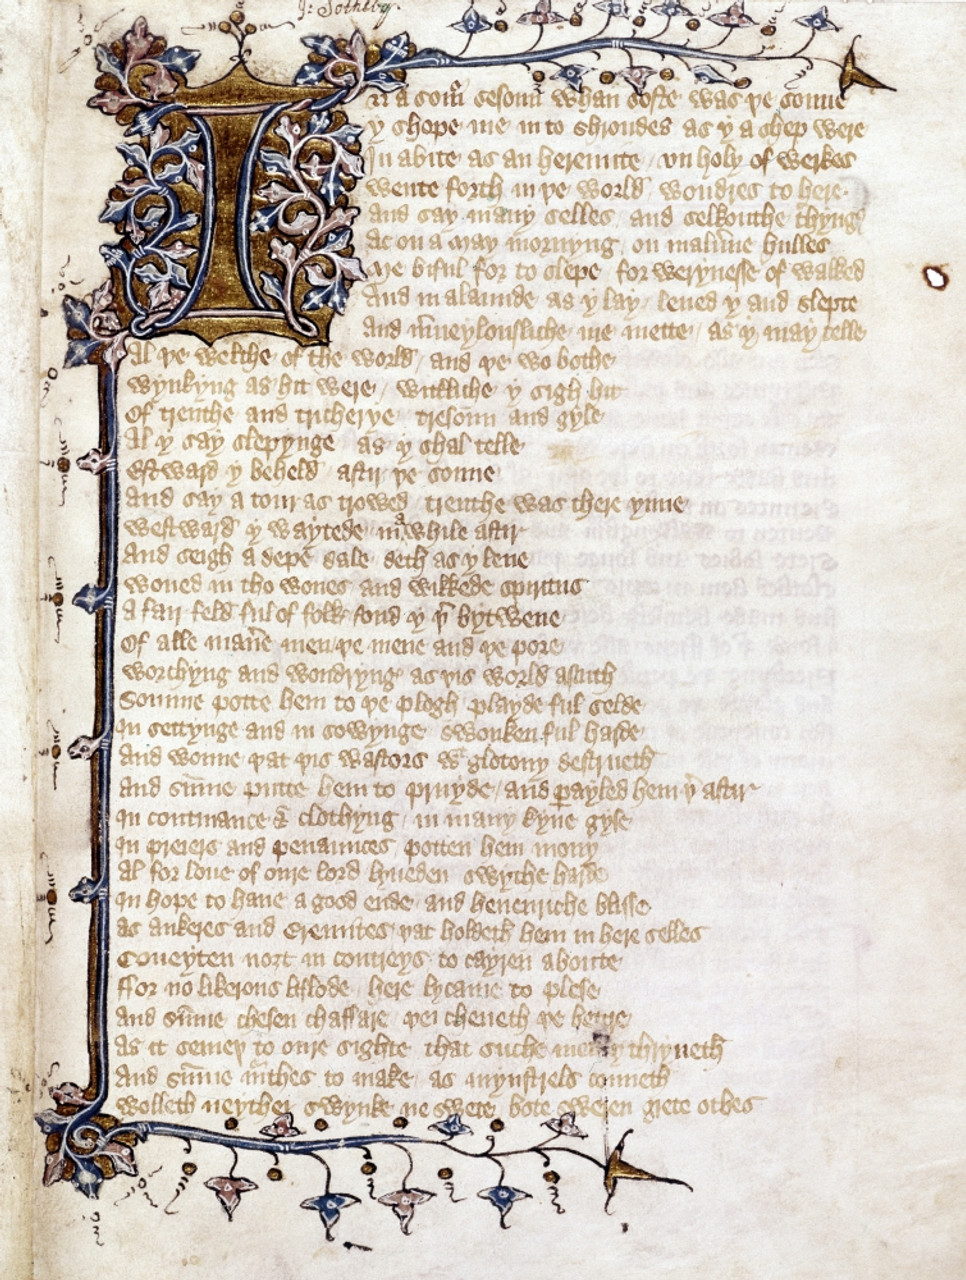 J: Sotheby.
In a somer sesoun whan softe was þe sonne
y shope me in to shroudes as y a shep were
In abite as an heremite vn holy of werkes
wente forth in þe world wondres to here
and say many selles and selkouthe thyngꝭ
Ac on a may mornyng on maluerne hulles
Me biful for to slepe for werynesse of walked
And in a launde as y lay lened y and slepte
And merueylousliche me mette as y may telle
Al þe welthe of the world and þe wo bothe
wynkyng as hit were witliche y sigh hit
Of treuthe and tricherye tresoun and gyle
Al y say slepynge as y shal telle
Estward y beheld aftir þe sonne
and say a tour as trowed treuthe was there ynne
westward y waytede in a while aftir
And seigh a depe dale deth as y leue
woned in tho wones and wikkede spiritus
A fair feld ful of folk fond y þer bytwene
Of alle manere men þe mene and þe pore
worchyng and wondryng as þis world asketh
Somme potte hem to þe plogh playde ful selde
In settynge and in sowynge swonken ful harde
And wonne þat þis wastors with glotony destrueth
and summe putte hem to pruyde and parayled hem þer aftir
In continance & clothyng in many kyne gyse
In preiers and penaunces potten hem mony
al for loue of oure lord lyueden swythe harde
In hope to haue a good ende and heueneriche blisse
as ankeres and Eremites þat holdeth hem in here selles
Coueyten noȝt in contreys to cayren aboute
Ffor no likerous liflode here lycame to plese
and summe chesen chaffare þei cheueth þe betre
as it semeþ to oure sighte that suche men thryueth
And summe murthes to make as mynstrels conneth
wolleth neyther swynke ne swete bote sweren grete othes